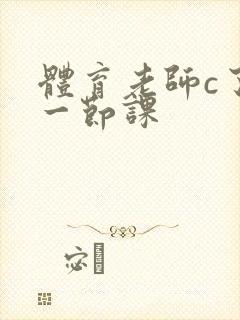 體育老師c了
一節課